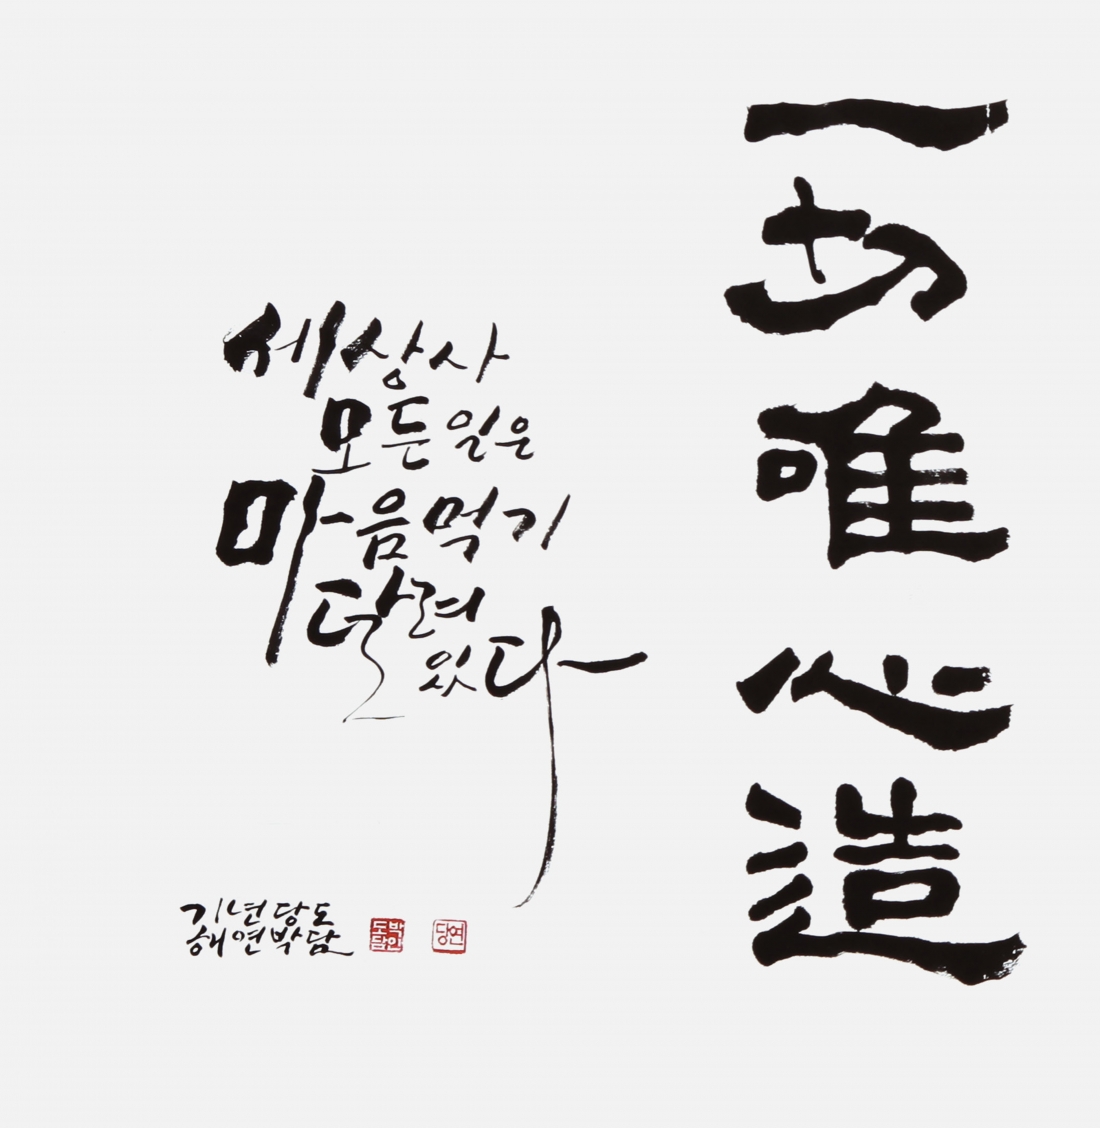 一切唯心造
세상사
모든 일은
마음먹기
달려
있다
기해년 연당 박도담
박인도담
연당